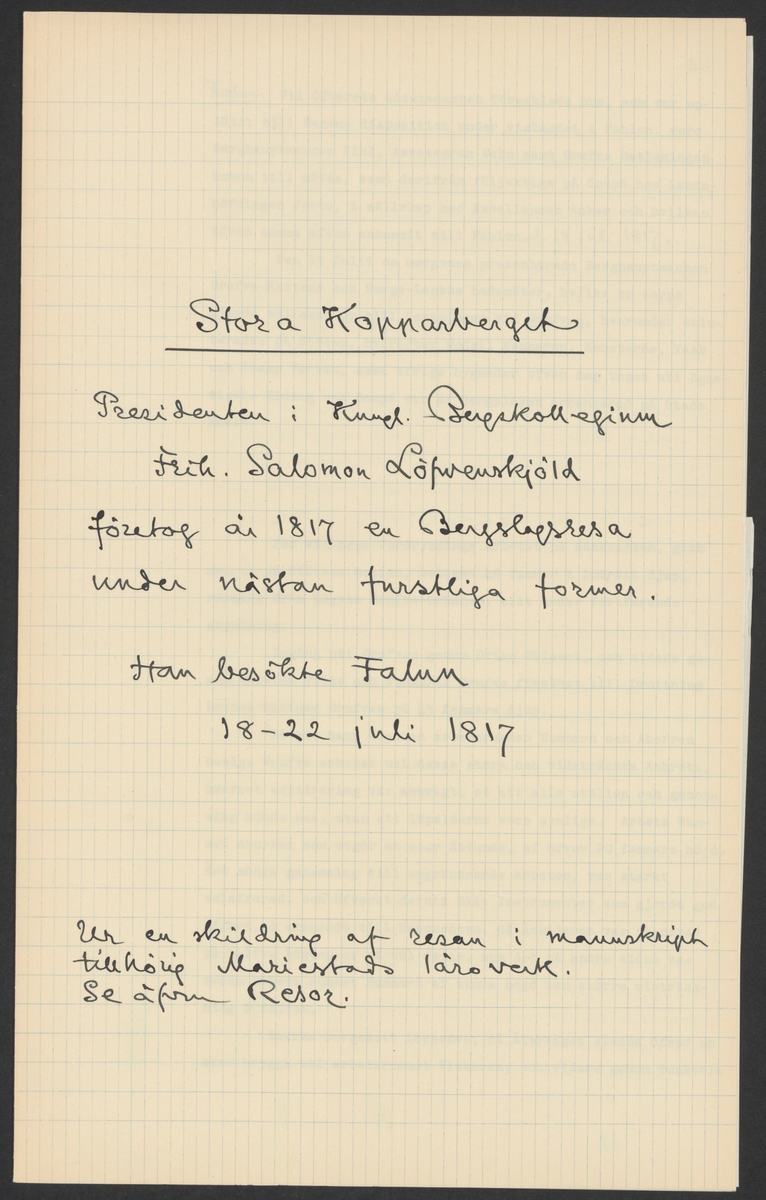 Stora Kopparberget
Presidenten i Kungl. Bergskollegium
Frih. Salomon Löfvenskjöld
företog år 1817 en Bergslagsresa
under nästan furstliga former.
Han besökte Falun
18-22 juli 1817
Ur en skildring af resan i manuskript
tillhörig Mariestads läroverk.
Se äfven Resor.